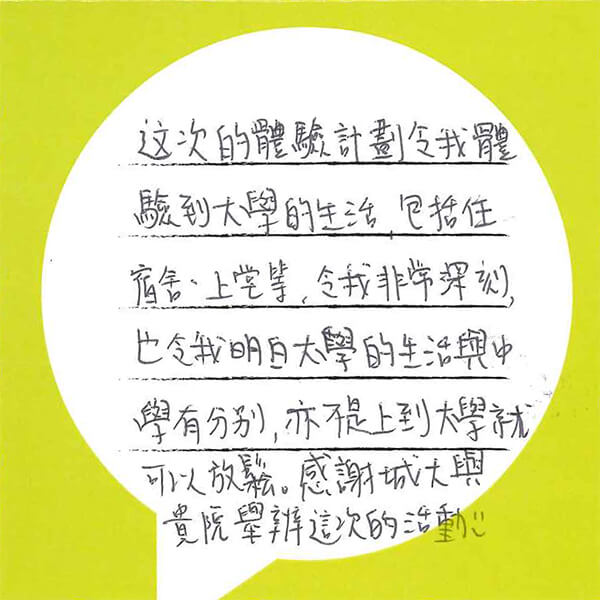 这次的體驗計劃令我體
驗到大學的生活,包括住
宿舍、上堂等,令我非常深刻,
也令我明白大學的生活與中
學有分别,亦不是上到大學就
可以放鬆。感謝城大與
貴院舉辨這次的活動:)